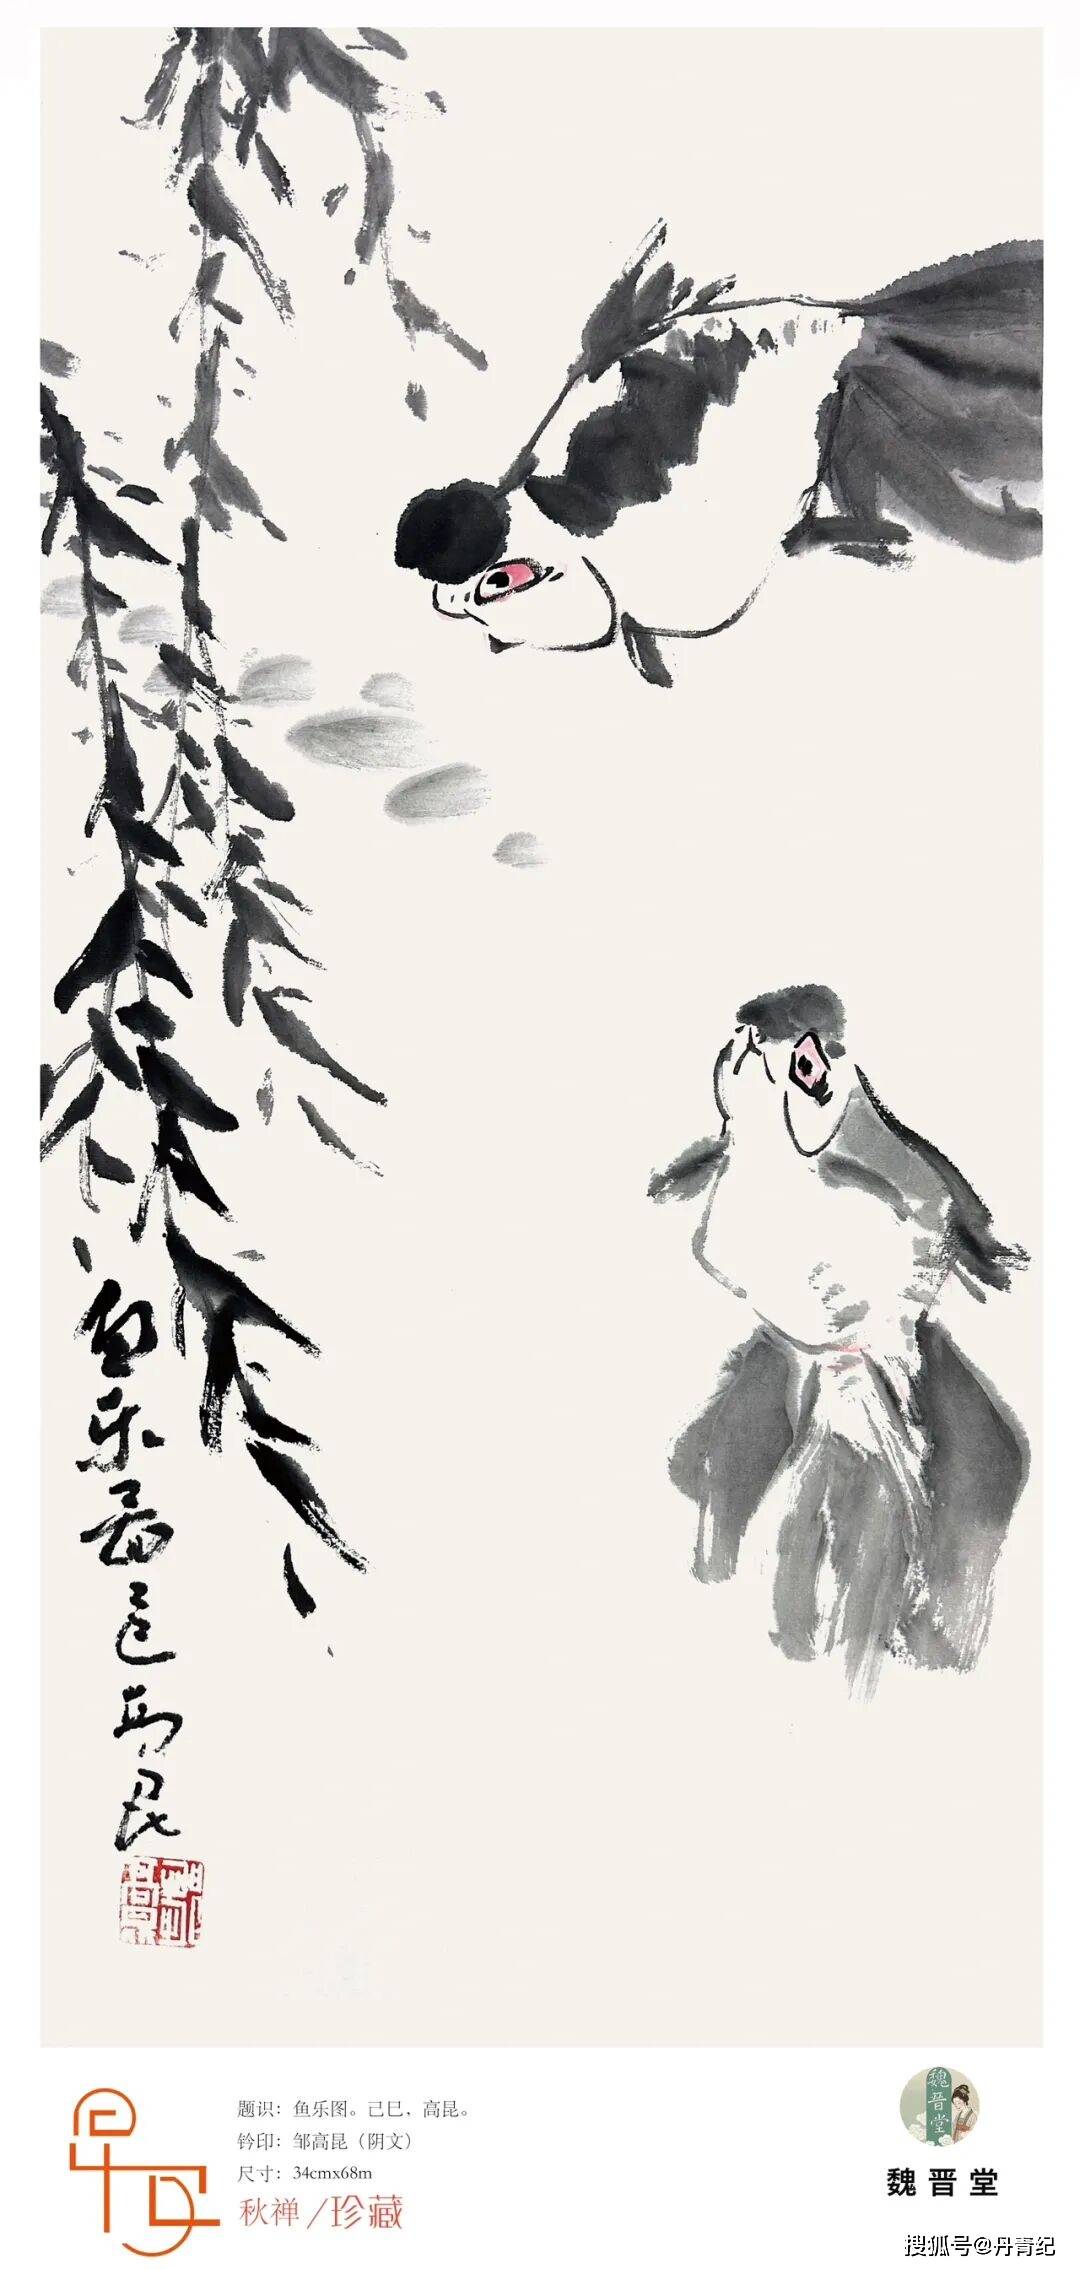 鱼乐图己巳高昆
题识：鱼乐图。己巳，高昆。
钤印：邹高昆（阴文）
尺寸：34cmx68m
秋禅/珍藏
魏晋堂
魏晋堂
搜狐号@丹青纪